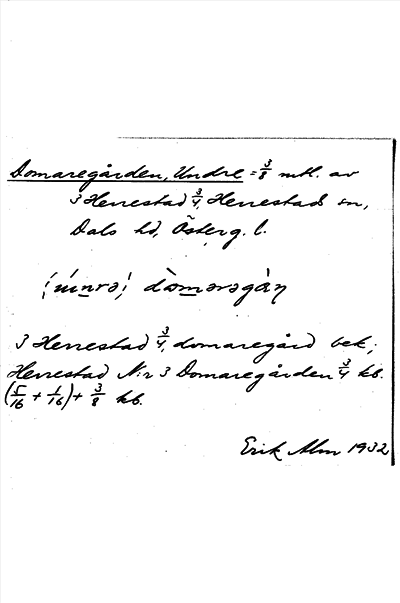 Domaregården, Undre = 3/8 mtl. av
3 Herrestad 3/4, Herrestads sn,
Dals hd, Österg. l.
3 Herrestad 3/4, domaregård bek;
Herrestad N:r 3 Domaregården 3/4 kb.
(5/16 + 1/16) + 3/8 kb.
Erik Alm 1932